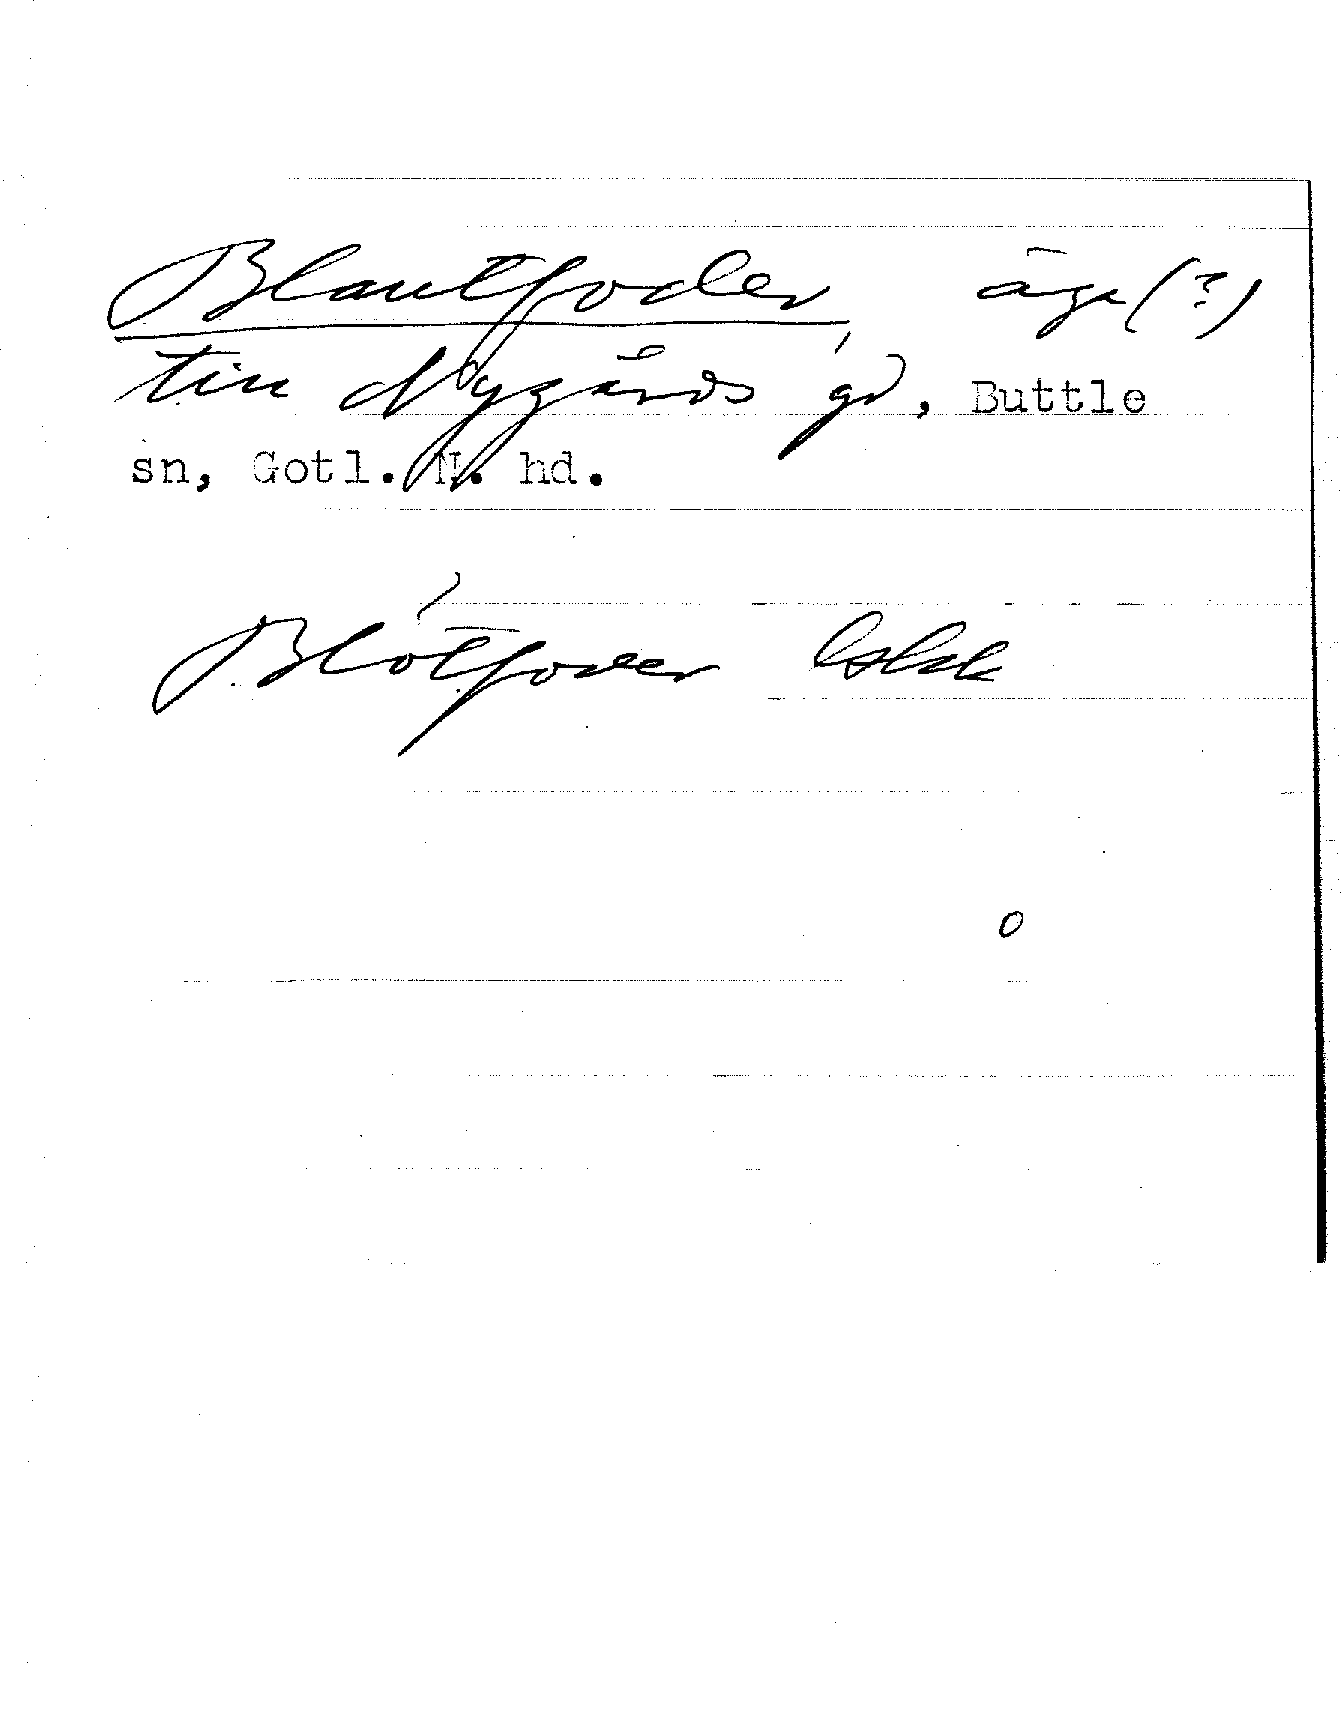 Blautfoder, äga(?)
till Nygårds gd, Buttle
sn, Gotl. N. hd.
Blötfoder Eskk
o